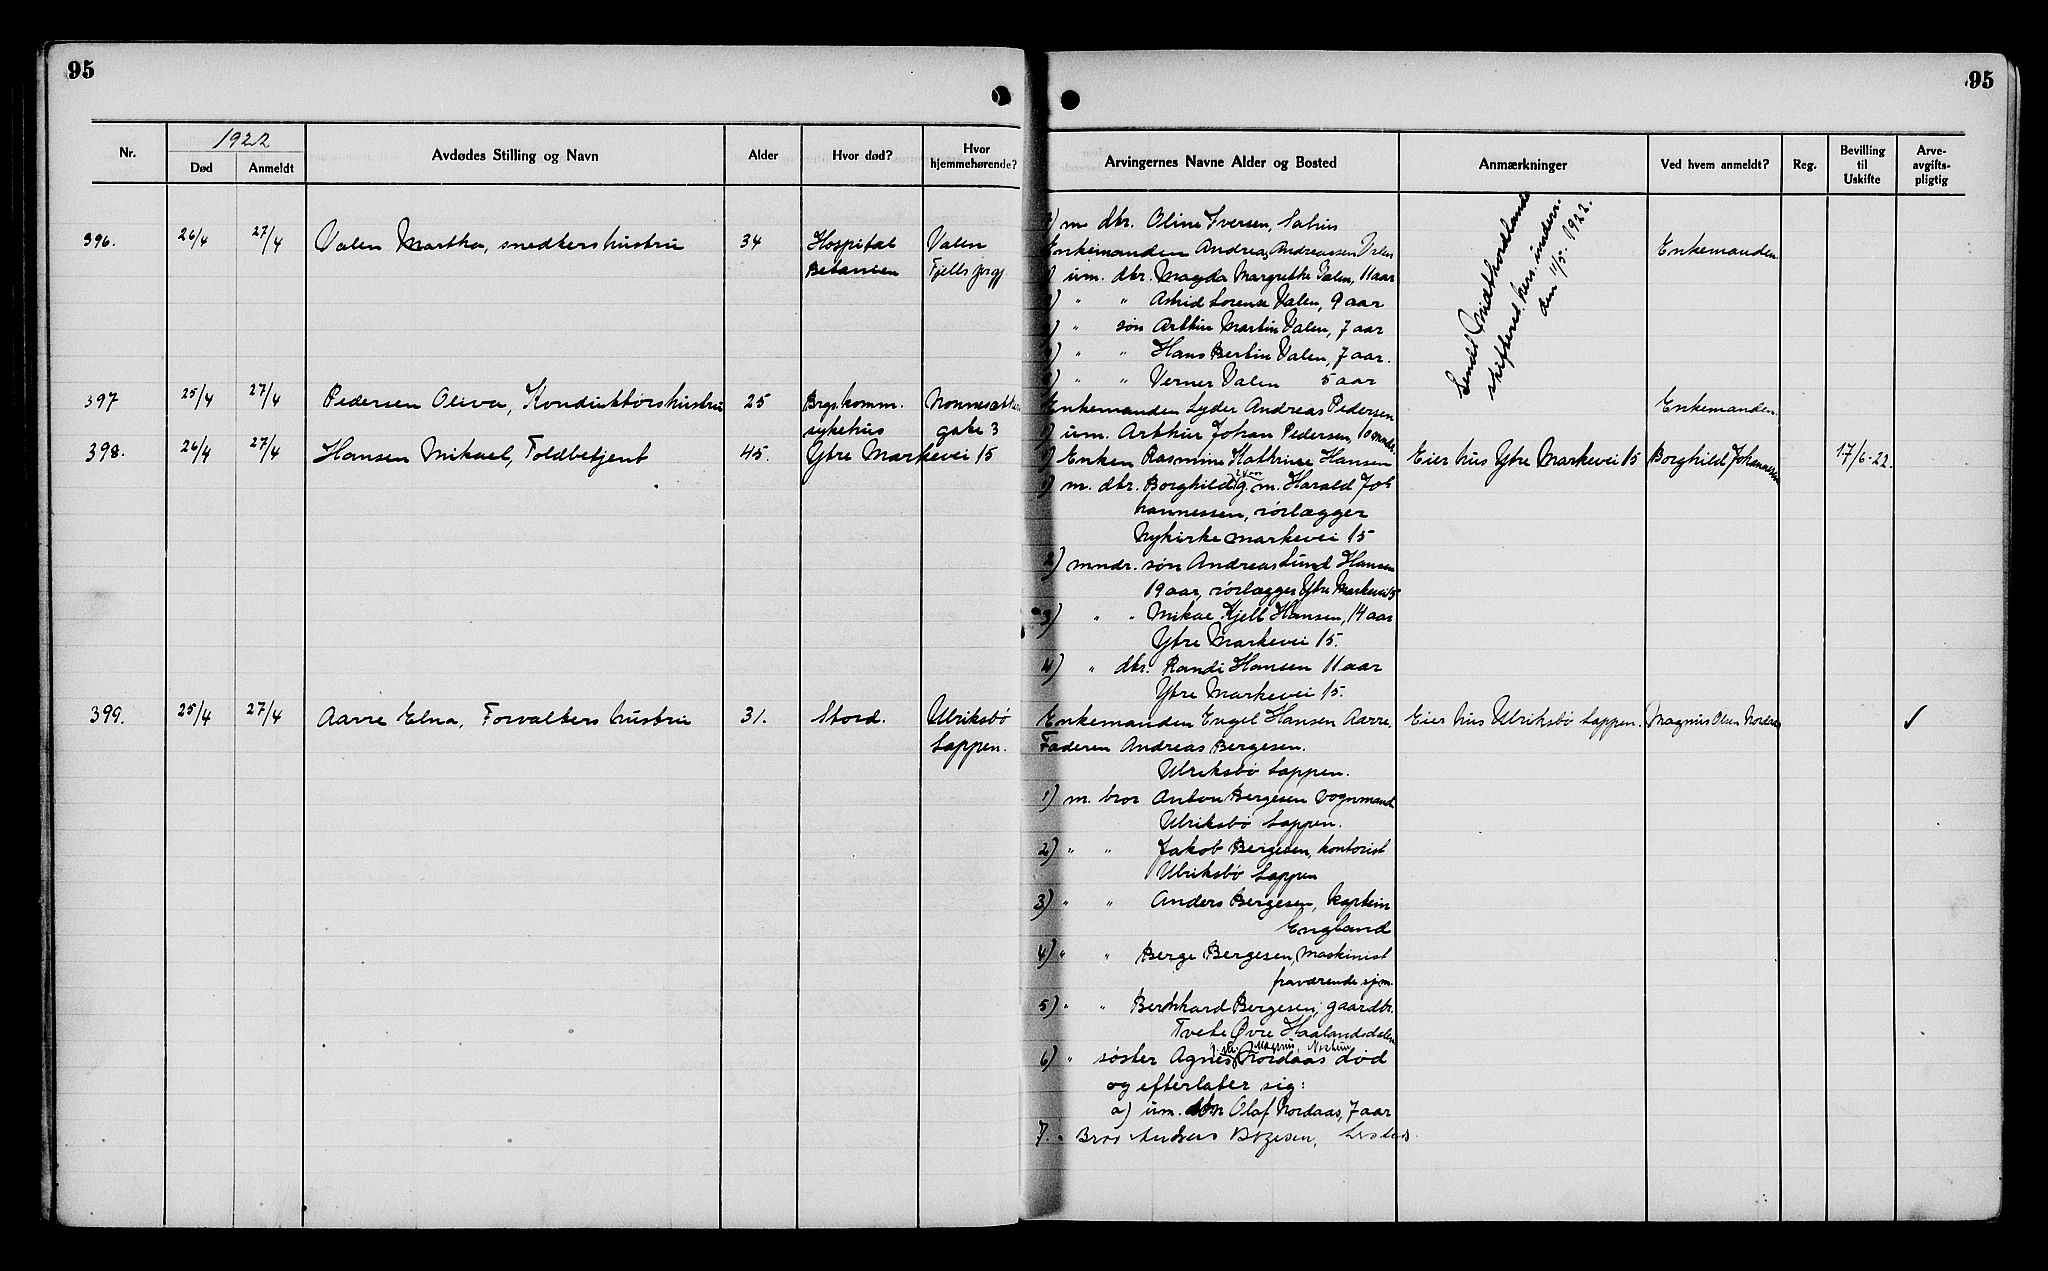 95
95
Nr.
1922
Død
Anmeldt
Avdødes Stilling og Navn
Alder
Hvor død?
Hvor
hjemmehørende?
Arvingernes Navne Alder og Bosted
Anmærkninger
Ved hvem anmeldt?
Reg.
Bevilling
til
Uskifte
Arve-
avgifts-
pligtig
m dtr. Oline Iversen,
396. 26/4 27/4 Valen Martha, snedkers hustru 34 Hospital Valen
Betanien Fjells prgj.
Enkemanden Andreas Andreassen Valen Enkemanden.
um. dtr. Magda Margrethe Valen, 11 aar
" " Astrid Lorense Valen, 9 aar
" søn Arthur Martin Valen, 7 aar
" " Hans Bertin Valen, 7 aar.
" " Verner Valen 5 aar
Sendt Midthordland
skifteret hers. indern.
den 11/5. 1922.
397 25/4 27/4 Pedersen Oliva, Konduktørshustru 25 Brgs. komm.
sykehus gate 3
Enkemanden Lyder Andreas Pedersen Enkemanden.
um. Arthur Johan Pedersen, 10 mndr.
398. 26/4 27/4 Hansen Mikael, Toldbetjent 45. Ytre Markevei 15
Enken Rasmine Kathrine Hansen Eier hus Ytre Markevei 15 Borghild Johannessen 17/6-22.
m. dtr. Borghild g. m. Harald Joh
hannessen, rørlægger
Nykirke markevei 15
2) mndr. søn Andreas Lund Hansen
19 aar, rørlægger Ytre Markevei 15
3) " " Mikae Kjell Hansen, 14 aar
Ytre Markevei 15.
4) " dtr. Randi Hansen 11 aar
Ytre Markevei 15.
399. 25/4 27/4 Aarre Elna, Forvalters hustru 31. Stord. Ulriksbø
Løppen.
Enkemanden Engel Hansen Aarre. Eier hus Ulriksbø Løppen. Magnus Olsen Nordaas ✓
Faderen Andreas Bergesen.
Ulriksbø Løppen.
1) m. bror Anton Bergesen vognmand
Ulriksbø Løppen.
2) " " Jakob Bergesen, kontorist
Ulriksbø Løppen
3) " " Anders Bergesen, kaptein
England
4) " " Berge Bergesen, Maskinist
fraværende sjøm.
5) " " Bernhard Bergesen, gaardbr.
Tveite Øvre Haalandsdalen
6) " søster Agnes Nordaas død
og efterlater sig:
a) um. søn Olaf Nordaas, 7 aar
7. " Bror Andreas